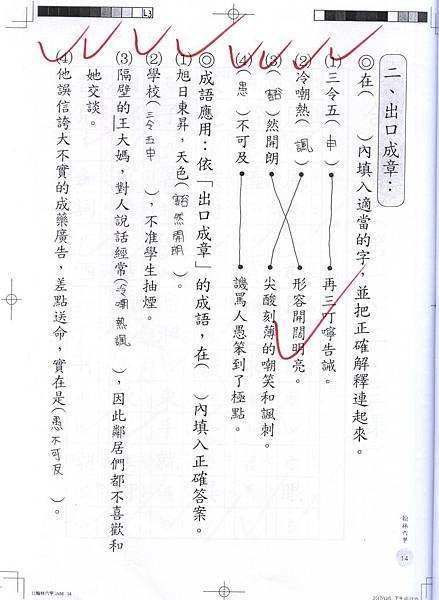 二、出口成章：
◎在（　）內填入適當的字，並把正確解釋連起來。
(1)三令五（申）
再三叮嚀告誡。
(2)冷嘲熱（諷）
形容開闊明亮。
(3)（豁）然開朗
尖酸刻薄的嘲笑和諷刺。
(4)（愚）不可及
譏罵人愚笨到了極點。
◎成語應用：依「出口成章」的成語，在（　）內填入正確答案。
(1)旭日東昇，天色（豁然開朗）。
(2)學校（三令五申），不准學生抽煙。
(3)隔壁的王大媽，對人說話經常（冷嘲熱諷），因此鄰居們都不喜歡和
她交談。
(4)他誤信誇大不實的成藥廣告，差點送命，實在是（愚不可及）。
翰林六甲
14
L3